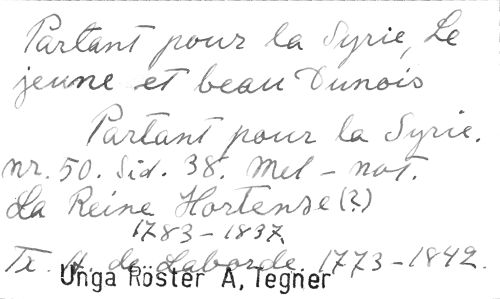 Partant pour la Syrie, Le
jeune et beau Dunois
Partant pour la Syrie.
nr. 50. Sid. 38. Mel - not.
La Reine Hortense (?)
1783-1837
Tx. A. de Laborde, 1773-1842.
Unga Röster A, Tegner